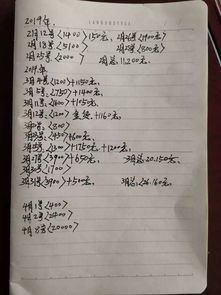 2019年
2月12号<1400>+150元, 2月16号<1900元>
2月18号<5100> 2月28号<800元>
2月25号<2000> 2月总,11200元.
2019年.
3月4号<1200>+1150元,
3月5号<750>+1400元.
3月11号<600>+1050元
3月12号<1200 +1160元.
3月 <800>
3月 <450>+600元
3月 <1300>+1750元+1200元.
3月27号<3900>+650元, 3月总.20.150元
3月30号<1700>
3月31号<3900>+500元, 3月总,26.160元.
4月1号<400>
4月2号<2400>
4月3号<20000>